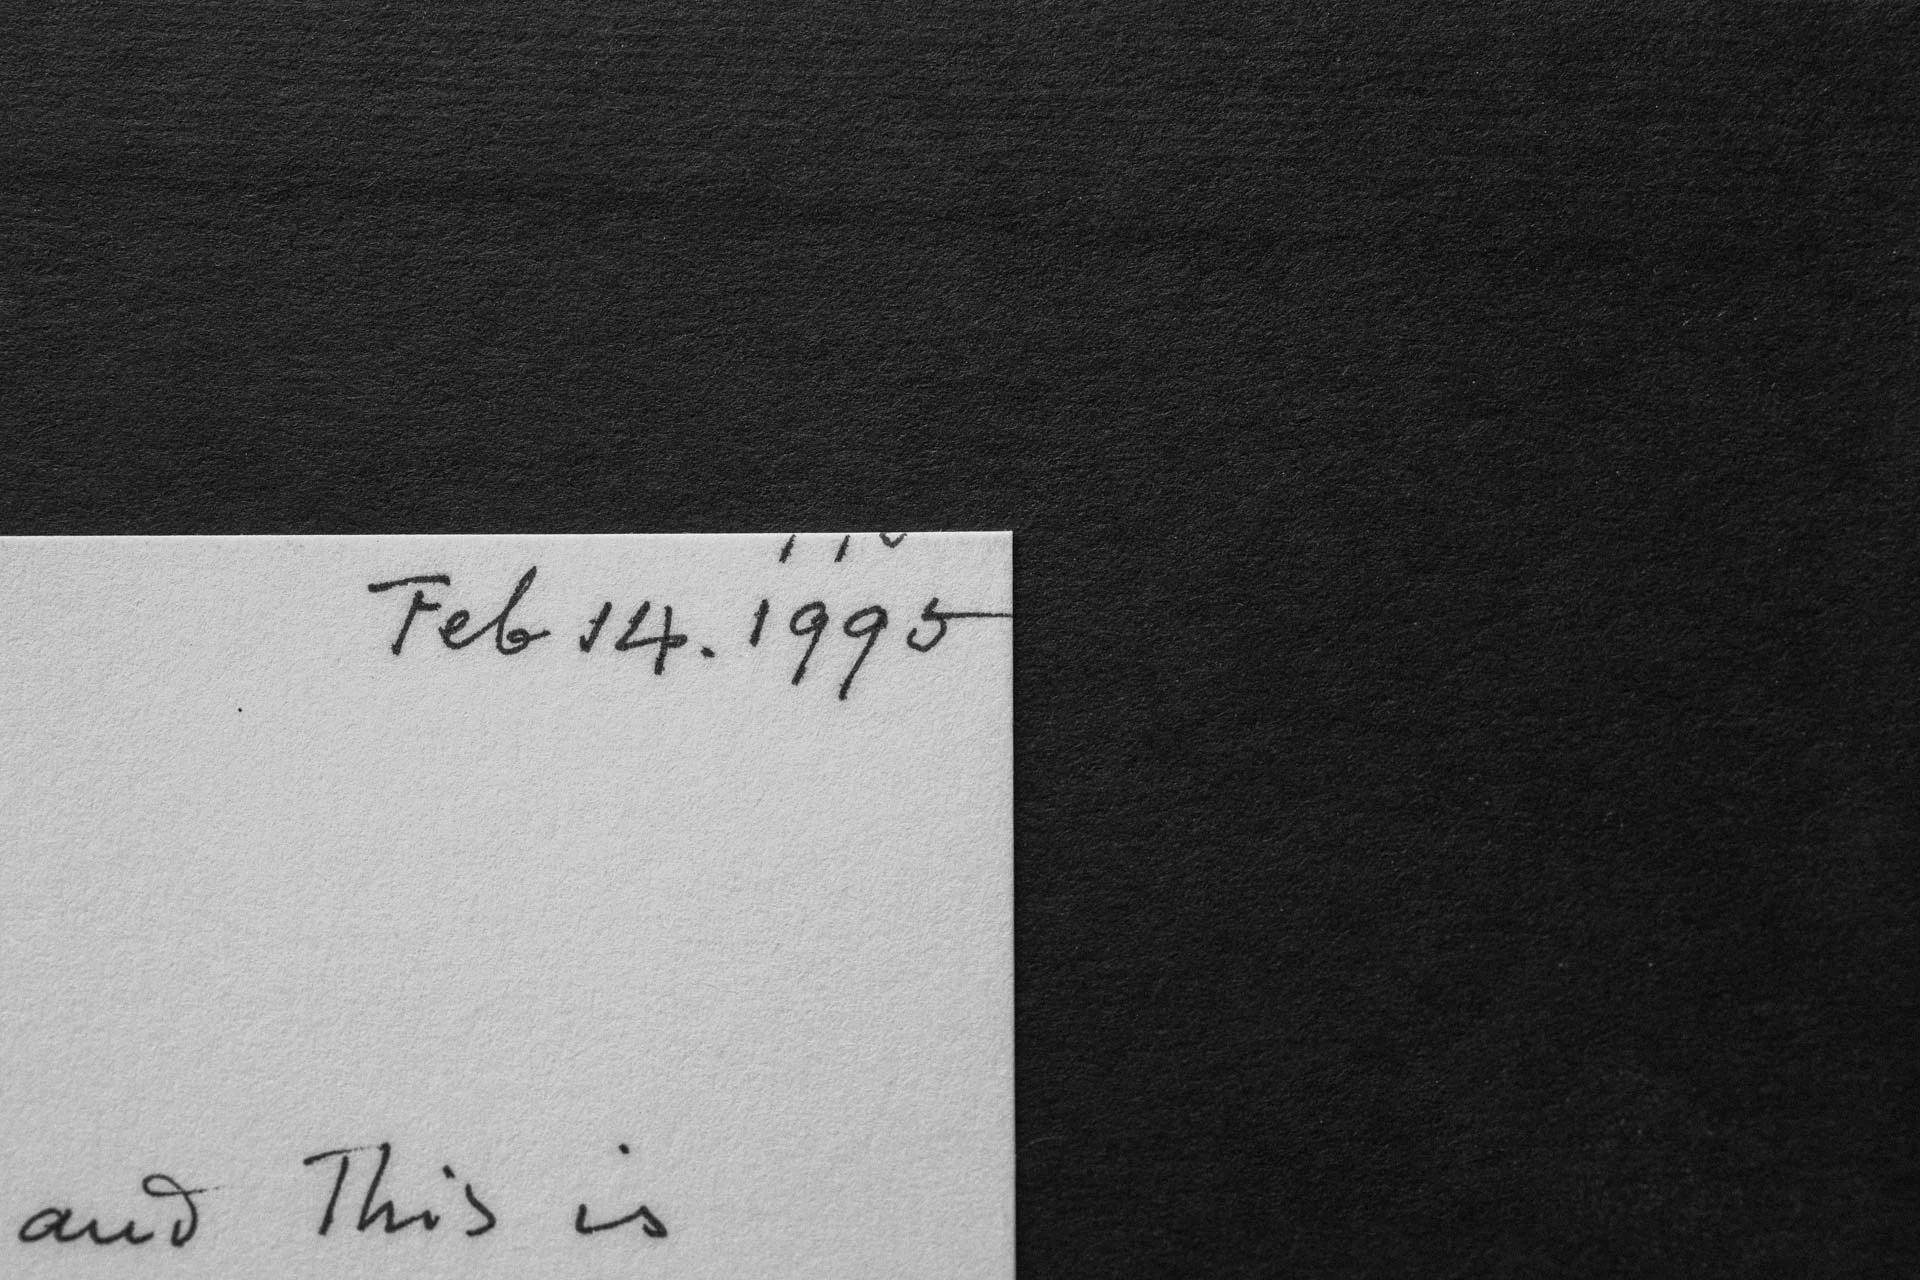 Feb 14. 1995
and This is